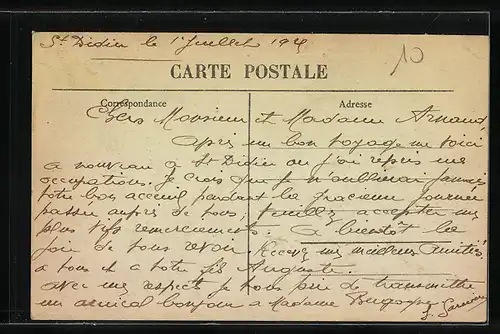 St Didier le 1 Juillet 19
10
CARTE POSTALE
Correspondance
Adresse
Chers Monsieur et Madame Arnaud,
après un bon voyage me voici
a nouveau a St Didier ou j'ai repris mes
occupations. Je crois que je n'oublierai jamais
votre bon acceuil pendant la gracieuse journée
passée auprès de vous; Veuillez accepter mes
plus vifs remerciements. a bientôt la
joie de vous revoir. Recevez mes meilleurs amitiés
a vous et a votre fils Auguste.
avec mes respects je vous prie de transmettre
un amical bonjour a Madame